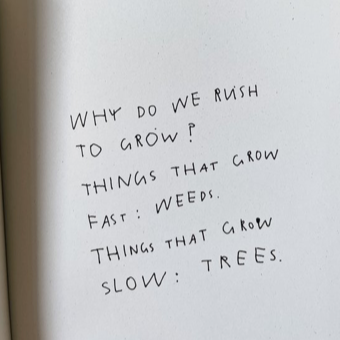 WHY DO WE RUSH
TO GROW?
THINGS THAT GROW
FAST: WEEDS.
THINGS THAT GROW
SLOW: TREES.